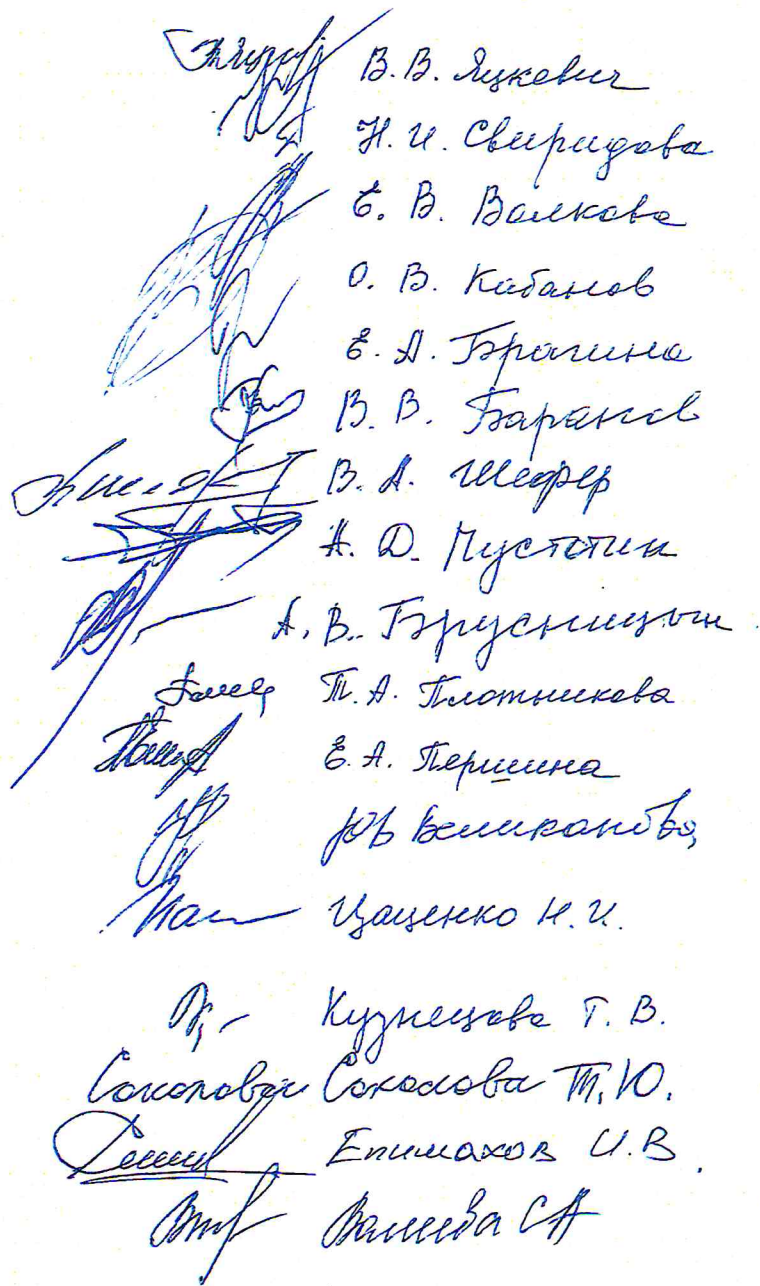 В. В. Яцкевич
Н. И. Свиридова
Е. В. Волкова
О. В. Кабанов
Е. А. Брагина
В. В. Баранов
В. А. Шефер
А. Д. Пустотин
А. В. Брусницын
Т. А. Плотникова
Е. А. Першина
ЮВ Великанова
Цаценко Н. И.
Кузнецова Т. В.
Соколова Соколова Т. Ю.
Епимахов И. В.
Валиева СА